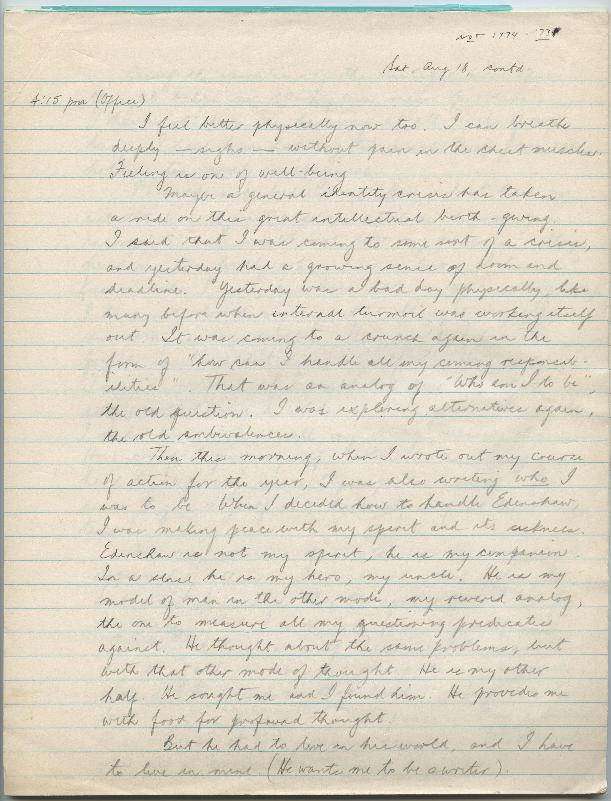 Not 1974 - 1973
Sat Aug 18, contd
4:15 pm (Office)
I feel better physically now too. I can breathe
deeply - sighs - without pain in the chest muscles.
Feeling is one of well-being
Maybe a general identity crisis has taken
a ride on this great intellectual birth-giving.
I said that I was coming to some sort of a crisis,
and yesterday had a growing sense of doom and
deadline. Yesterday was a bad day physically, like
many before when internal turmoil was working itself
out. It was coming to a crunch again in the
form of "how can I handle all my coming responsib-
ilities". That was an analog of "Who am I to be",
the old question. I was exploring alternatives again,
the old ambivalences.
Then this morning, when I wrote out my course
of action for the year, I was also writing who I
was to be. When I decided how to handle Edenshaw,
I was making peace with my spirit and its sickness.
Edenshaw is not my spirit, he is my companion.
In a sense he is my hero, my uncle. He is my
model of man in the other mode, my revered analog,
the one to measure all my questioning predicates
against. He thought about the same problems, but
with that other mode of thought. He is my other
half. He sought me and I found him. He provides me
with food for profound thought.
But he had to live in his world, and I have
to live in mine (He wants me to be a writer).